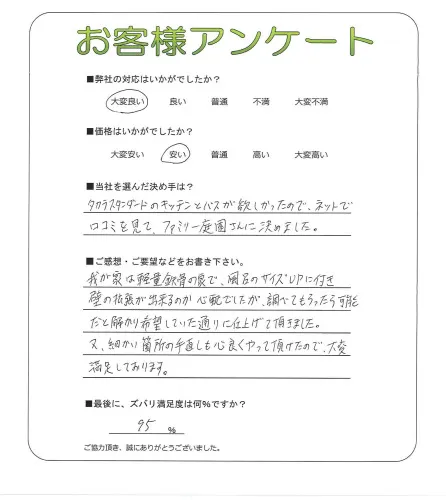 お客様アンケート
■弊社の対応はいかがでしたか?
大変良い 良い 普通 不満 大変不満
■価格はいかがでしたか?
大変安い 安い 普通 高い 大変高い
■当社を選んだ決め手は?
タカラスタンダードのキッチンとバスが欲しかったので、ネットで
口コミを見て、ファミリー庭園さんに決めました。
■ご感想・ご要望などをお書き下さい。
我が家は軽量鉄骨の家で、風呂のサイズUPに付き
壁の拡張が出来るのか心配でしたが、調べてもらったら可能
だと解かり希望していた通りに仕上げて頂きました。
又、細かい箇所の手直しも心良くやって頂けたので、大変
満足しております。
■最後に、ズバリ満足度は何%ですか?
95 %
ご協力頂き、誠にありがとうございました。